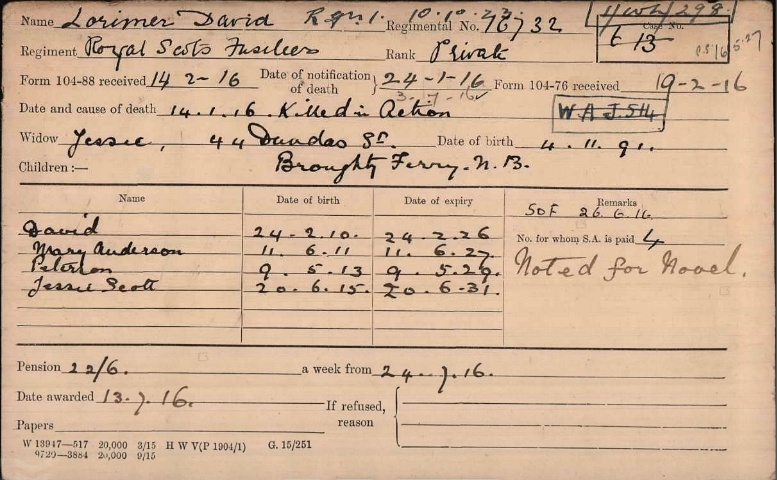 Name Lorimer David Regt. 10.10.23. Regimental No. 16732 4/WL/298.
Case No.
6 13
Regiment Royal Scots Fusiliers Rank Private
Form 104-88 received 14 2-16 Date of notification of death } 24-1-16 Form 104-76 received 19-2-16
Date and cause of death 14.1.16. Killed in Action W.A.J.514
Widow Jessie, 44 Dundas St. Date of birth 4.11.91.
Children:— Broughty Ferry. N.B.
Name Date of birth Date of expiry Remarks
SOF 26.6.16
David 24-2.10. 24.2.26
No. for whom S.A. is paid 4
Mary Anderson 11. 6.11 11. 6.27.
Peterson 9. 5.13 9. 5.29.
Noted for Novel.
Jessie Scott 20. 6.15. 20. 6-31.
Pension 22/6. a week from 24.7.16.
Date awarded 13.7.16.
If refused, reason
Papers
W 13947—517 20,000 3/15 H W V(P 1904/1) G. 15/251
9729—3884 20,000 9/15